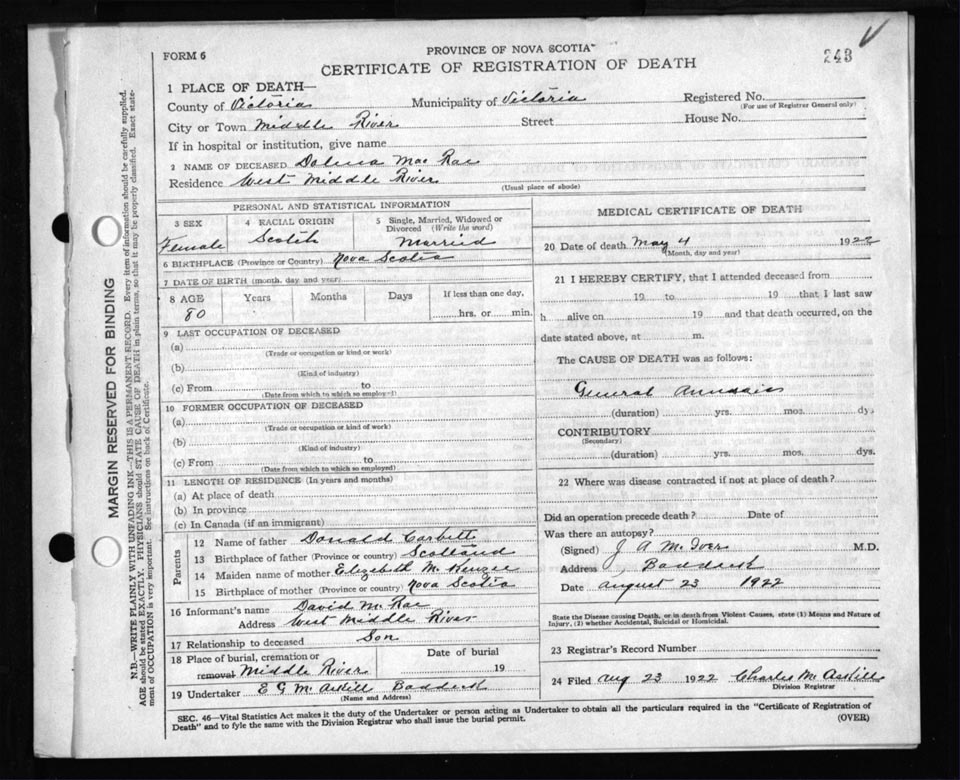 243
FORM 6
PROVINCE OF NOVA SCOTIA
CERTIFICATE OF REGISTRATION OF DEATH
1 PLACE OF DEATH—
County of Victoria Municipality of Victoria Registered No.
(For use of Registrar General only)
City or Town Middle River Street House No.
If in hospital or institution, give name
2 NAME OF DECEASED Dolina Mac Rae
Residence West Middle River
(Usual place of abode)
MARGIN RESERVED FOR BINDING
N.B.—WRITE PLAINLY WITH UNFADING INK—THIS IS A PERMANENT RECORD. Every item of information should be carefully supplied.
AGE should be stated EXACTLY. PHYSICIANS should STATE CAUSE OF DEATH in plain terms, so that it may be properly classified. Exact state-
ment of OCCUPATION is very important. See instructions on back of Certificate.
PERSONAL AND STATISTICAL INFORMATION
3 SEX
Female
4 RACIAL ORIGIN
Scotch
5 Single, Married, Widowed or
Divorced (Write the word)
Married
6 BIRTHPLACE (Province or Country) Nova Scotia
7 DATE OF BIRTH (month, day and year)
8 AGE Years Months Days If less than one day,
80
hrs. or min.
9 LAST OCCUPATION OF DECEASED
(a)
(Trade or occupation or kind or work)
(b)
(Kind of industry)
(c) From to
(Date from which to which so employed)
10 FORMER OCCUPATION OF DECEASED
(a)
(Trade or occupation or kind of work)
(b)
(Kind of industry)
(c) From to
(Date from which to which so employed)
11 LENGTH OF RESIDENCE (In years and months)
(a) At place of death
(b) In province
(c) In Canada (if an immigrant)
Parents
12 Name of father Donald Corbett
13 Birthplace of father (Province or country) Scotland
14 Maiden name of mother Elizabeth McKenzie
15 Birthplace of mother (Province or country) Nova Scotia
16 Informant's name David McRae
Address West Middle River
17 Relationship to deceased Son
18 Place of burial, cremation or Date of burial
removal Middle River 19
19 Undertaker E G McAskill Baddeck
(Name and Address)
MEDICAL CERTIFICATE OF DEATH
20 Date of death May 4 1922
(Month, day and year)
21 I HEREBY CERTIFY, that I attended deceased from
19 to 19 that I last saw
h alive on 19 and that death occurred, on the
date stated above, at m.
The CAUSE OF DEATH was as follows:
General
(duration) yrs. mos. dys
CONTRIBUTORY
(Secondary)
(duration) yrs. mos. dys.
22 Where was disease contracted if not at place of death?
Did an operation precede death? Date of
Was there an autopsy?
(Signed) J A McIver M.D.
Address Baddeck
Date August 23 1922
State the Disease causing Death, or in death from Violent Causes, state (1) Means and Nature of
Injury, (2) whether Accidental, Suicidal or Homicidal.
23 Registrar's Record Number
24 Filed Aug 23 1922 Charles McAskill
Division Registrar
SEC. 46—Vital Statistics Act makes it the duty of the Undertaker or person acting as Undertaker to obtain all the particulars required in the "Certificate of Registration of
Death" and to fyle the same with the Division Registrar who shall issue the burial permit.
(OVER)